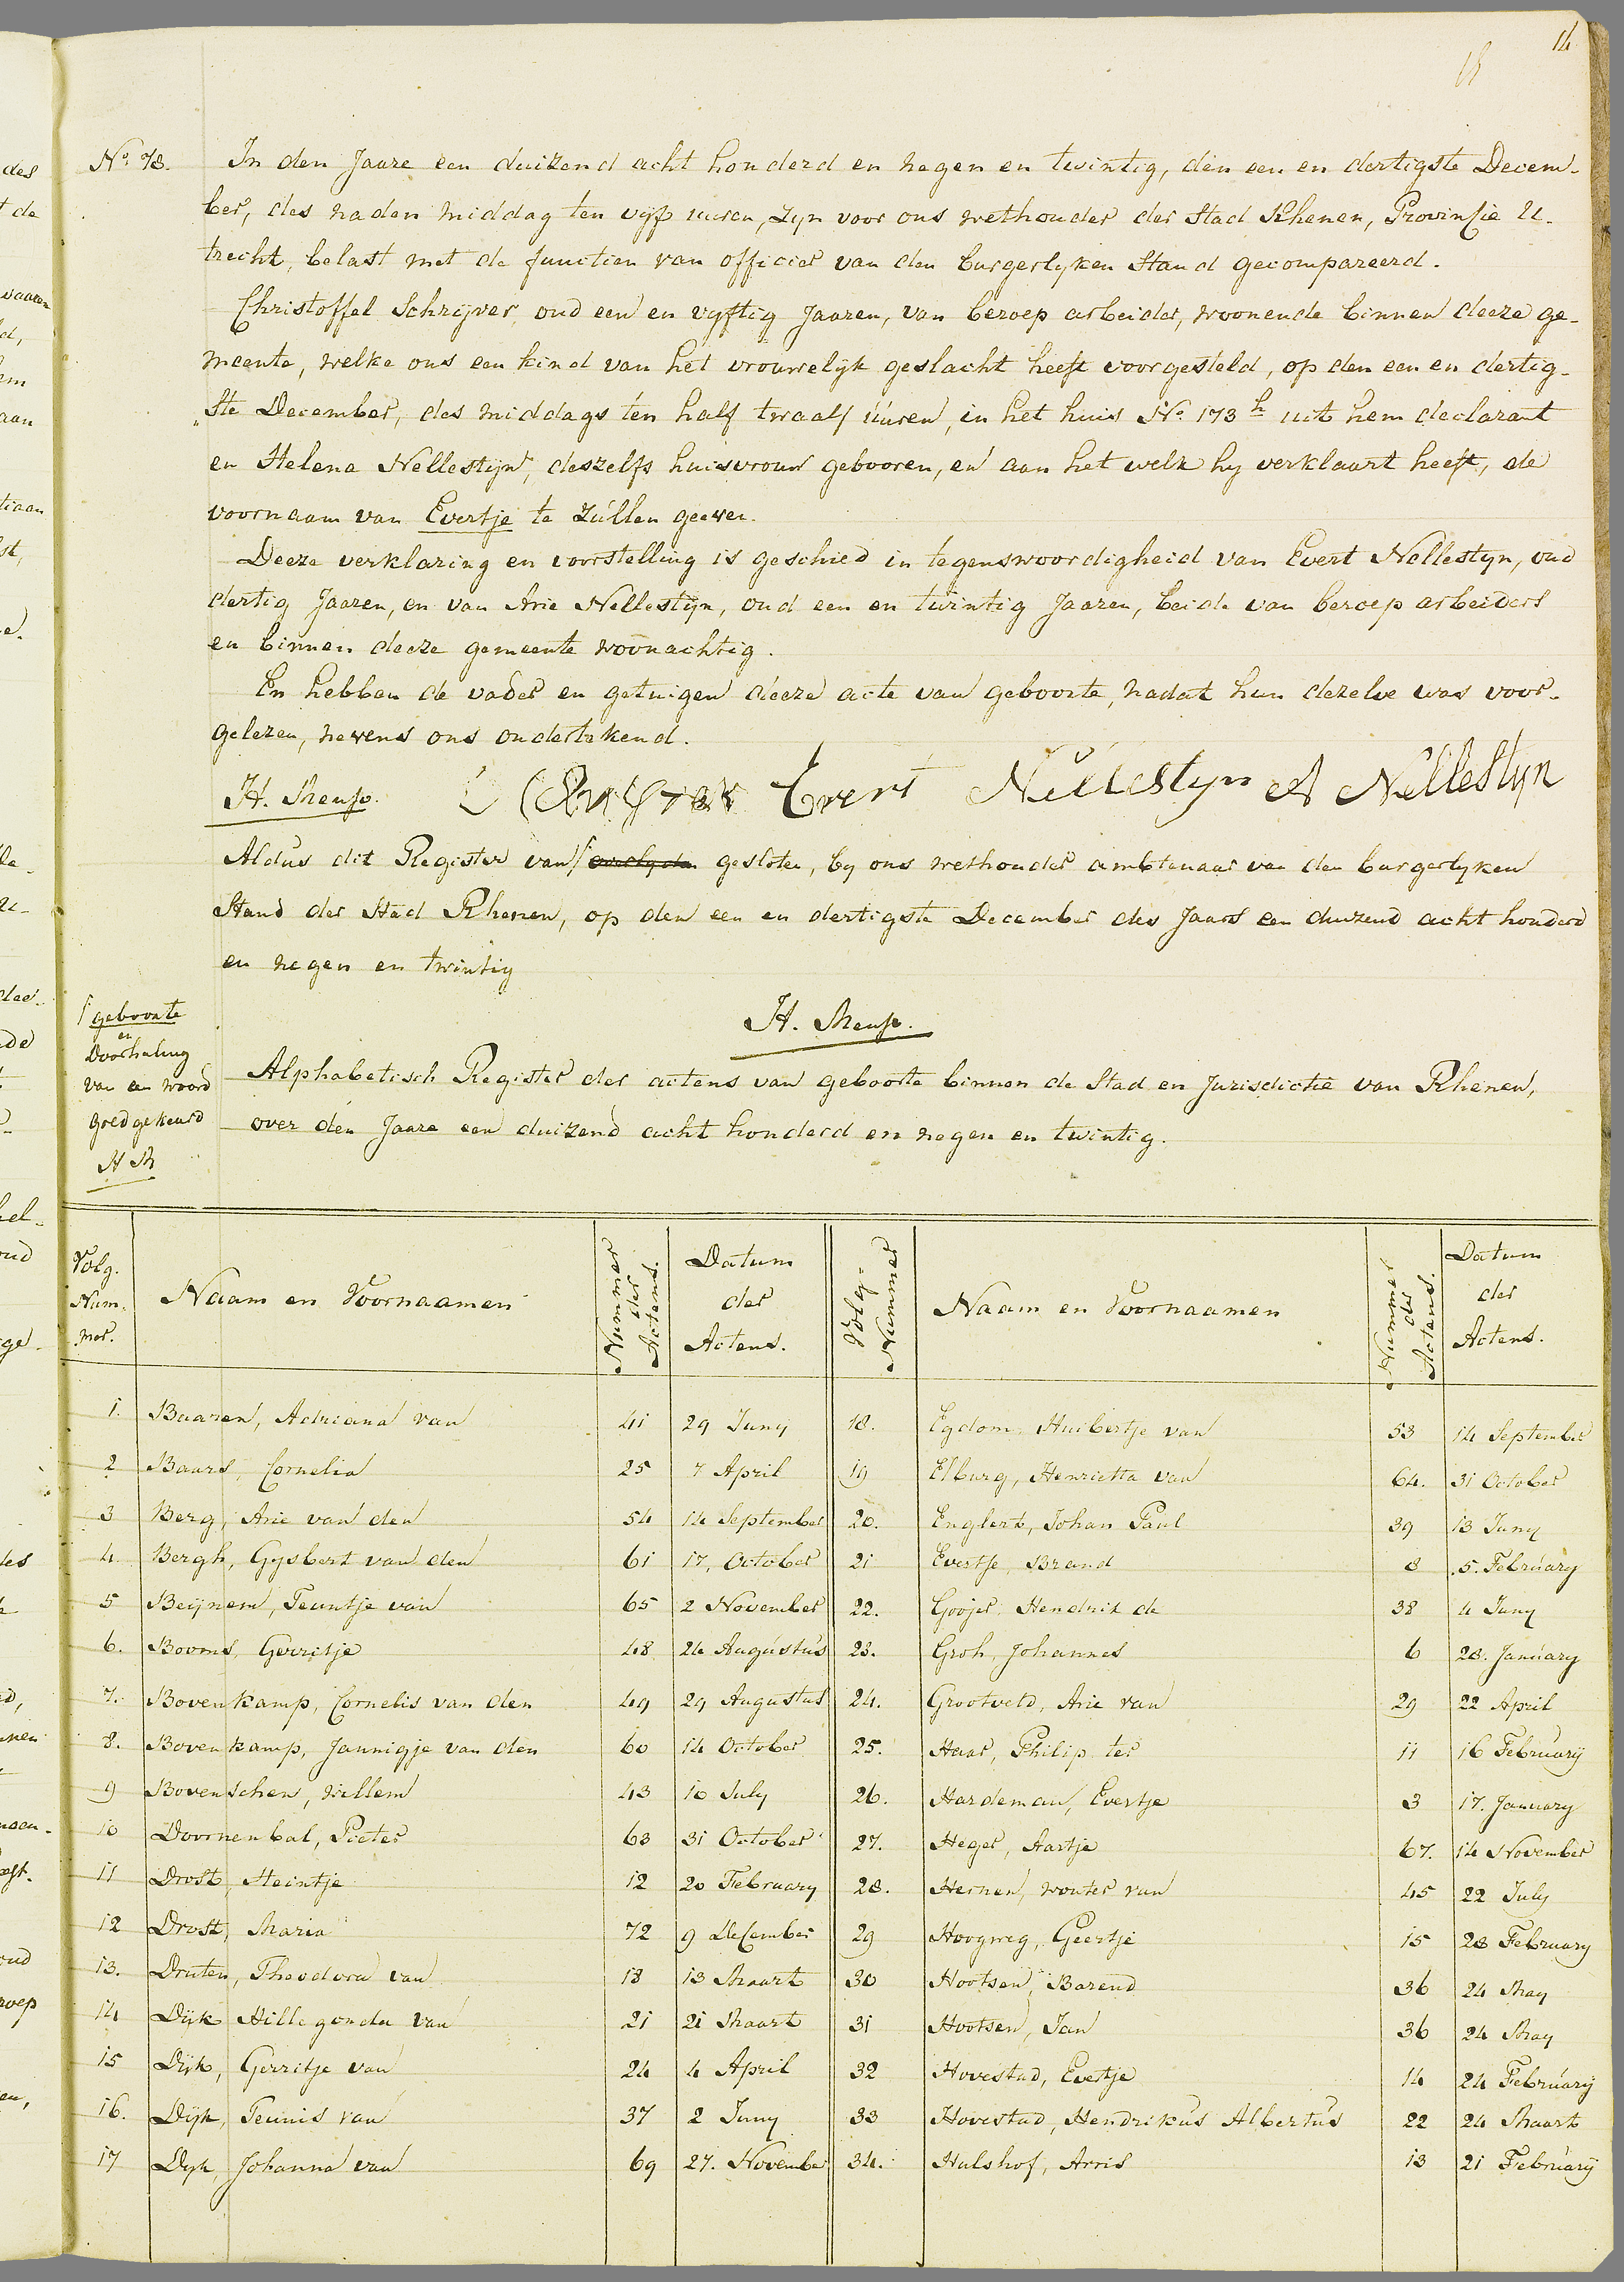 14
N.o 78. In den Jaare een duizend acht honderd en negen en twintig, den een en dertigste Decem-
ber, des naden middag ten vyf uuren, zyn voor ons wethouder der Stad Rhenen, Provinsie U-
trecht, belast met de functien van officier van den burgerlyken Stand gecompareerd.
Christoffel Schrijver, oud een en vyftig Jaaren, van beroep arbeider, woonende binnen deeze ge-
meente, welke ons een kind van het vrouwelijk geslacht heeft voorgesteld, op den een en dertig-
„ste December, des middags ten half twaalf uuren, in het huis No. 173 h uit hem declarant
en Helena Nellestijn, deszelfs huisvrouw gebooren, en aan het welk hy verklaart heeft, de
voornaam van Evertje te zullen geeven.
Deeze verklaring en voorstelling is geschied in tegenswoordigheid van Evert Nellestyn, oud
dertig Jaaren, en van Arie Nellestijn, oud een en twintig Jaaren, beide van beroep arbeiders
en binnen deeze gemeente woonachtig.
En hebben de vader en getuigen deeze acte van geboorte, nadat hun dezelve was voor-
gelezen, nevens ons ondertekend.
H. Menso. Evert Nellestyn A Nellestyn
Aldus dit Register van gesloten, by ons wethouder ambtenaar van den burgerlyken
Stand der Stad Rhenen, op den een en dertigste December des Jaars een duizend acht honderd
en negen en twintig
H. Menso.
geboorte
en
Doorhaling
van een woord
goedgekeurd
H M
Alphabetisch Register der actens van geboorte binnen de Stad en Jurisdictie van Rhenen,
over den Jaare een duizend acht honderd en negen en twintig.
Volg-Nummer. Naam en Voornaamen Nummer der Actens. Datum der Actens. Volg-Nummer Naam en Voornaamen Nummer der Actens. Datum der Actens.
1. Baaren, Adriana van 41 29 Juny 18. Egdom, Huibertje van 53 14 September
2 Baars, Cornelia 25 7 April 19 Elburg, Henrietta van 64. 31 October
3 Berg, Arie van den 54 14 September 20. Englert, Johan Paul 39 13 Juny
4. Bergh, Gysbert van den 61 17. October 21 Evertse, Brand 8 5. February
5 Beijnem, Teuntje van 65 2 November 22. Goojer, Hendrik de 38 4 Juny
6. Booms, Gerritje 48 24 Augustus 23. Groh, Johannes 6 28. January
7. Bovenkamp, Cornelis van den 49 29 Augustus 24. Grootveld, Arie van 29 22 April
8. Bovenkamp, Jannigje van den 60 14 October 25. Haar, Philip ter 11 16 February
9 Bovenschen, Willem 43 10 July 26. Hardeman, Evertje 3 17. January
10 Doornenbal, Pieter 63 31 October 27. Heger, Aartje 67. 14 November
11 Drost, Heintje 12 20 February 28. Hernen, wouter van 45 22 July
12 Drost, Maria 72 9 December 29 Hoogweg, Geertje 15 28 February
13. Druten, Theodora van 18 13 Maart 30 Hootsen, Barend 36 24 May
14 Dijk Hillegonda van 21 21 Maart 31 Hootsen, Jan 36 24 May
15 Dijk, Gerritje van 24 4 April 32 Hovestad, Evertje 14 24 February
16. Dijk, Teunis van 37 2 Juny 33 Hovestad, Hendrikus Albertus 22 24 Maart
17 Dyk, Johanna van 69 27. November 34. Hulshof, Arris 13 21 February